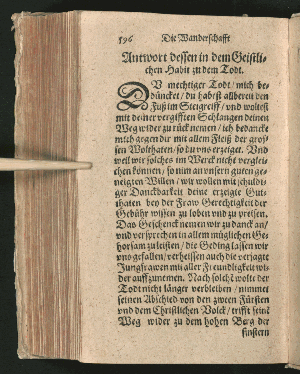 596 Die Wanderschafft
Antwort dessen in dem Geistli-
chen Habit zu dem Todt.
DV mechtiger Todt / mich be-
düncket / du habest allbereit den
Fuß im Steigreiff / vnd woltest
mit deiner vergifften Schlangen deinen
Weg wider zu rück nemen / ich bedancke
mich gegen dir mit allem Fleiß der gros-
sen Wolthaten / so du vns erzeiget. Vnd
weil wir solches im Werck nicht verglei-
chen können / so nim an vnsern guten ge-
neigten Willen / wir wollen mit schuldi-
ger Danckbarkeit deine erzeigte Gut-
thaten bey der Fraw Gerechtigkeit der
Gebühr wissen zu loben vnd zu preisen.
Das Geschenck nemen wir zu danck an /
vnd versprechen in allem müglichen Ge-
horsam zuleisten / die Geding lassen wir
vns gefallen / verheissen auch die verjagte
Jungfrawen mit aller Freundligkeit wi-
der auffzunemen. Nach solchem wolte der
Todt nicht länger verbleiben / nimmet
seinen Abschied von den zween Fürsten
vnd dem Christlichen Volck / trifft seinen
Weg wider zu dem hohen Berg der
finstern